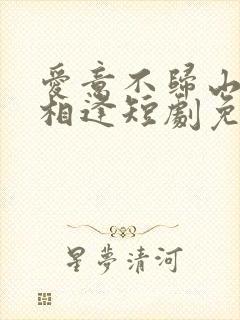 愛意不歸山
相逢短劇免
星夢清河